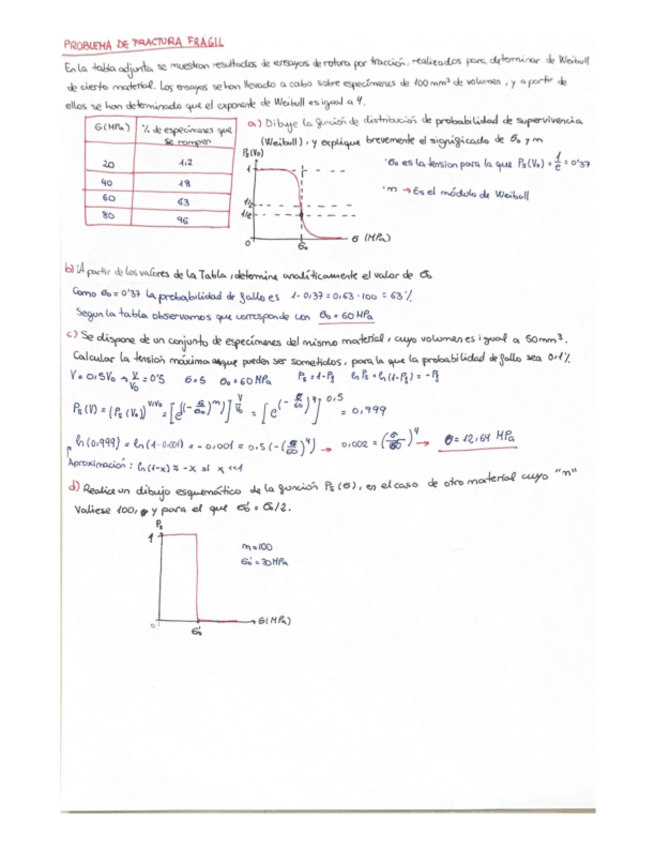 PROBLEMA DE FRACTURA FRÁGIL
En la tabla adjunta se muestran resultados de ensayos de rotura por tracción, realizados para determinar de Weibull
de cierto material. Los ensayos se han llevado a cabo sobre especímenes de 100 mm³ de volumen, y a partir de
ellos se han determinado que el exponente de Weibull es igual a 4.
σ (MPa) | % de especímenes que se rompen
20 | 1,2
40 | 18
60 | 63
80 | 96
a) Dibuje la función de distribución de probabilidad de supervivencia
(Weibull), y explique brevemente el significado de σ₀ y m
Ps(V₀)
1
1/2
1/e
0
σ₀
σ (MPa)
· σ₀ es la tension para la que Ps(V₀) = 1/e = 0'37
· m → Es el módulo de Weibull
b) A partir de los valores de la Tabla, determine analíticamente el valor de σ₀
Como σ₀ = 0'37 la probabilidad de fallo es 1 - 0,37 = 0,63 · 100 = 63%
Segun la tabla observamos que corresponde con σ₀ = 60 MPa
c) Se dispone de un conjunto de especímenes del mismo material, cuyo volumen es igual a 50 mm³.
Calcular la tensión máxima que pueden ser sometidos, para la que la probabilidad de fallo sea 0,1%
V = 0,5V₀ → V/V₀ = 0'5 σ = 5 σ₀ = 60 MPa Ps = 1 - Pf ln Ps = ln(1-Pf) = -Pf
Ps(V) = (Ps(V₀))^(V/V₀) = [e^(-(σ/σ₀)^m)]^(V/V₀) = [e^(-(σ/60)^4)]^0,5 = 0,999
ln(0,999) = ln(1-0.001) = -0,001 = 0,5(-(σ/60)^4) → 0,002 = (σ/60)^4 → σ = 12,64 MPa
Aproximación: ln(1-x) ≈ -x si x <<1
d) Realice un dibujo esquemático de la función Ps(σ), en el caso de otro material cuyo "m"
valiese 100, y para el que σ₀' = σ₀/2.
Ps
1
0
σ₀'
σ (MPa)
m = 100
σ₀' = 30 MPa